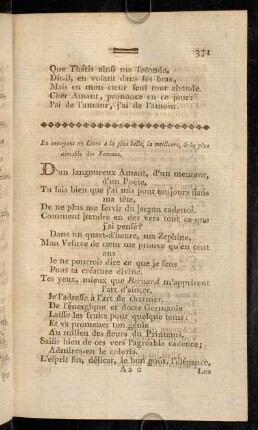 371
Que Thétis ainſi me ſeconde,
Dit-il, en volant dans ſes bras,
Mais en mon cœur ſeul tout abonde.
Cher Amant, prononce en ce jour:
J'ai de l'amour, j'ai de l'amour.
En envoyant un Livre à la plus belle, la meilleure, & la plus
aimable des Femmes.
D'un langoureux Amant, d'un menteur,
d'un Poëte,
Tu ſais bien que j'ai mis pour toujours dans
ma tête,
De ne plus me ſervir du jargon cadencé.
Comment rendre en des vers tout ce que
j'ai penſé?
Dans un quart-d'heure, un Zephire,
Mon Veſuve de cœur me prouve qu'en cent
ans
Je ne pourrois dire ce que je ſens
Pour ta créature divine.
Tes yeux, mieux que Bernard m'apprirent
l'art d'aimer.
Je l'adreſſe à l'art de charmer.
De l'énergique et docte Germanie
Laiſſe les fruits pour quelque tems:
Et va promener ton génie
Au milieu des fleurs du Printems,
Saiſis bien de ces vers l'agréable cadence;
Admires-en le coloris.
L'eſprit fin, délicat, le bon goût, l'élégance,
Aa 2
Les